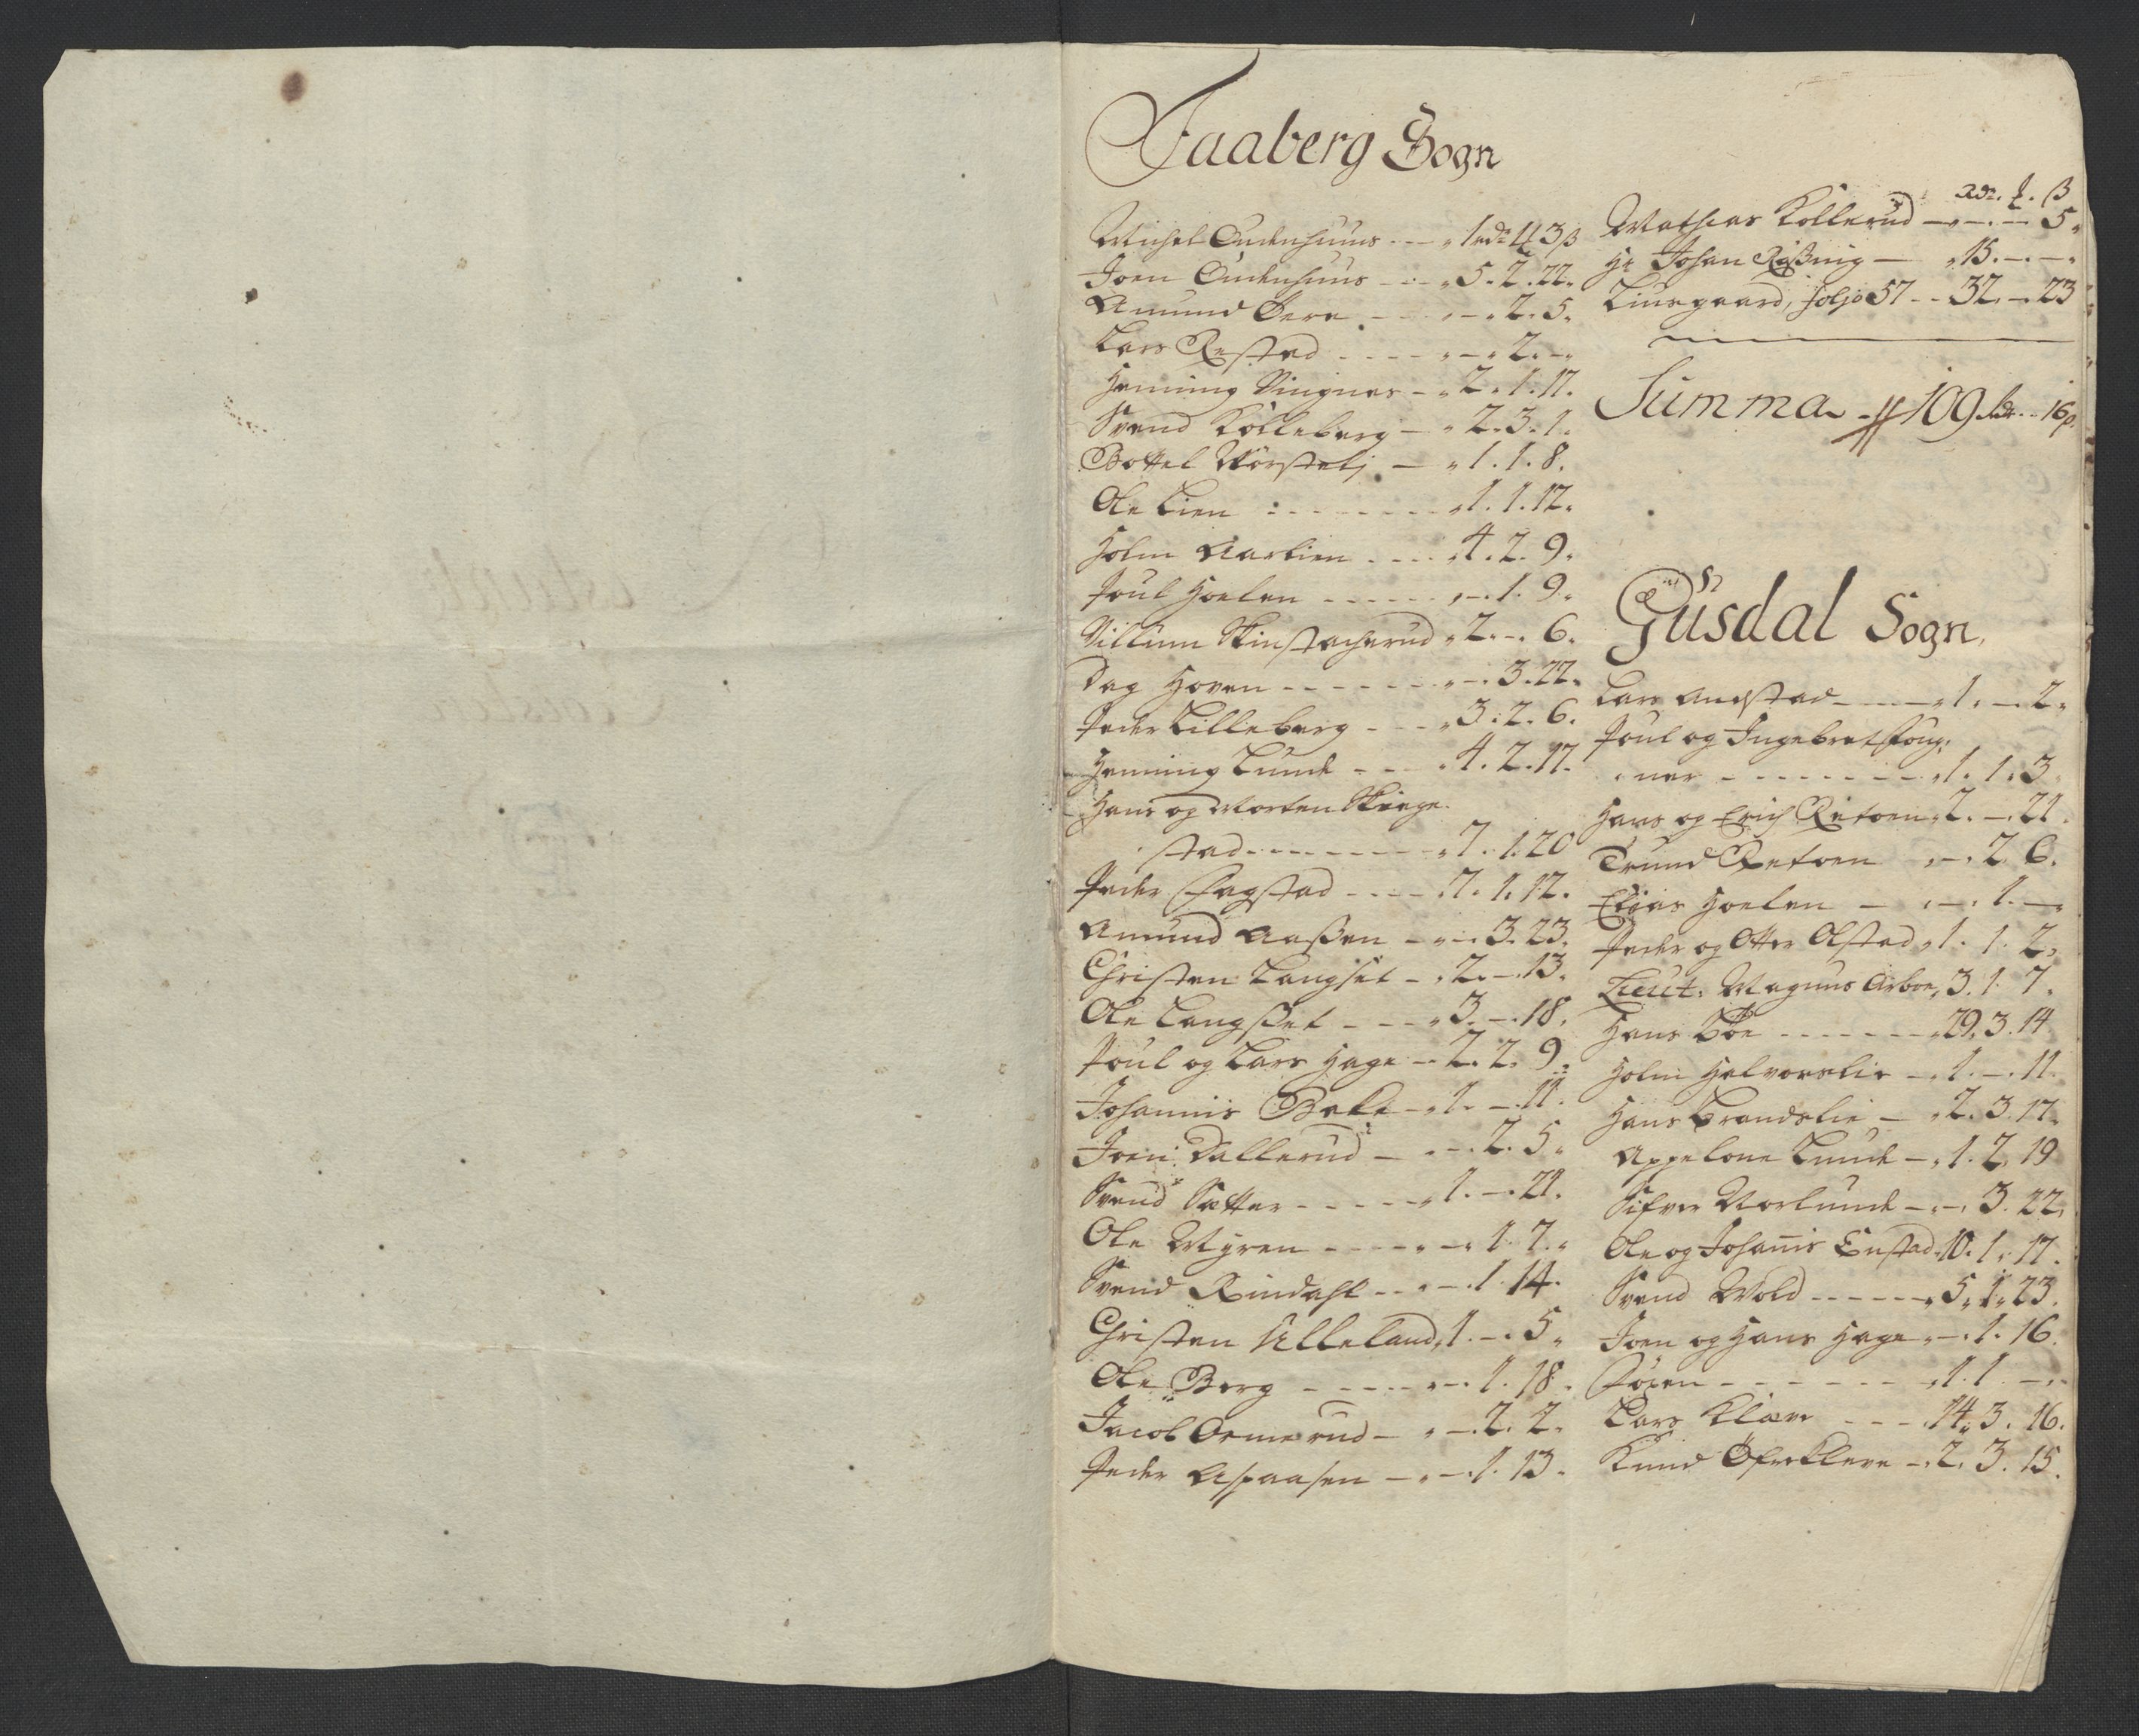 Faaberg Sogn
Michel Ondenhuus - - - 1 rdr 4 3 ß
Joen Ondenhuus - - - 5 . 2 . 22 .
Amund Øere - - - - . 2 . 5 .
Lars Restad - - - - - . 2 . -
Henning Vingnes - . 2 . 1 . 17 .
Svend Kolleberg - . 2 . 3 . 1 .
Bottel Nørstelj - . 1 . 1 . 8 .
Ole Lien - - - - - . 1 . 1 . 12 .
Holm Aarlien - - - . 4 . 2 . 9 .
Poul Hoelen - - - - . - . 1 . 9 .
Villum Skinstacherud . 2 . - . 6 .
Dag Hoven - - - - - . - . 3 . 22 .
Peder Lilleberg - - - . 3 . 2 . 6 .
Henning Lunde - - - . 4 . 2 . 17 .
Hans og Morten Skiege
stad - - - - - - . 7 . 1 . 20
Peder Fagstad - - - . 7 . 1 . 12 .
Amund Aassen - . - . 3 . 23 .
Christen Langset - . 2 . - . 13 .
Ole Langset - - - . 3 . - . 18 .
Poul og Lars Hage - . 2 . 2 . 9 .
Johannis Bake - . 1 . - . 11 .
Joen Dallerud - . - . 2 . 5 .
Svend Sætter - - - - . 1 . - . 21 .
Ole Myren - - - . - . 1 . 7 .
Svend Rindahl - - . - . 1 . 14 .
Christen Ulleland . 1 . - . 5 .
Ole Berg - - - - . - . 1 . 18 .
Jacob Ormerud - . - . 2 . 2 .
Peder Aspaasen - . - . 1 . 13 .
Rdr. . ß
Mathias Kollerud - . - . - 5 .
Hr Johan Rissing - . 15 . - . -
Liusgaard, folio 57 - - 32 . - . 23
Summa - 109 Rdr - 16 ß.
Gusdal Sogn,
Lars Andstad - - - . 1 . - . 2 .
Poul og Ingebret Foug,
ner - - - - - - . 1 . 1 . 3 .
Hans og Erich Retoen . 2 . - . 21 .
Trund Retoen . - . 2 . 6 .
Elias Hoelen - . - . 1 . -
Peder og Otter Olstad . 1 . 1 . 2 .
Lieut: Magnus Arboe, 3 . 1 . 7 .
Hans Bøe - - - - - . 29 . 3 . 14
Holm Halvorslie - . 1 . - . 11 .
Hans Brandslie - . 2 . 3 . 17 .
Appelone Lunde - . 1 . 2 . 19
Sifver Norlunde - . - . 3 . 22 .
Ole og Johanis Enstad . 10 . 1 . 17 .
Svend Wold - - - - . 5 . 1 . 23 .
Joen og Hans Hage . - . 1 . 16 .
- - - - - - . 1 . 1 . -
Lars Klæve - - - . 14 . 3 . 16 .
Knud Øfreklæve - . 2 . 3 . 15 .